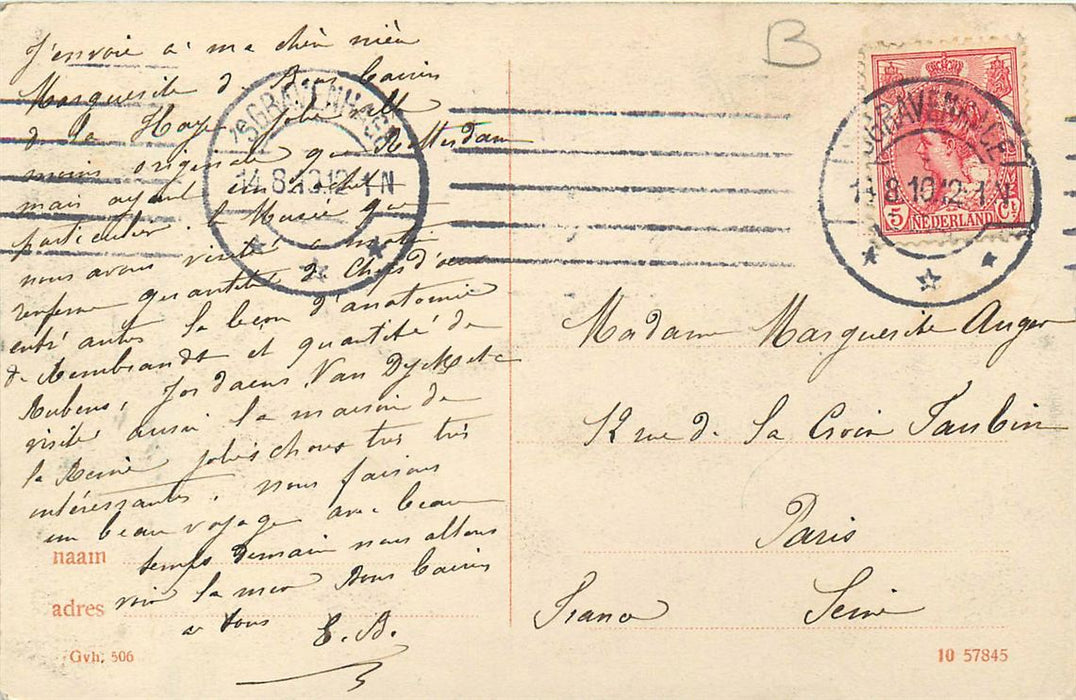 J'envoie à ma chèr nièce
Marguerite de Bons baisers
de la Haye jolie ville
moins originale que Rotterdam
mais ayant un cachet
particulier le Musée que
nous avons visité ce matin
renferme quantité de Chefs d'œuvre
entr'autres la leçon d'anatomie
de Rembrandt et quantité de
Rubens, Jordaens, Van Dyck etc
visité aussi la maison de
la Reine jolies choses très très
intéressantes. nous faisons
un beau voyage avec beau
temps Demain nous allons
voir la mer Bons baisers
à tous E. B.
naam
adres
Gvh. 506
'S GRAVENHAGE
14.8.10.12-1 N
B
'S GRAVENHAGE
14.8.10.12-1 N
5 Ct
NEDERLAND
Madame Marguerite Auger
12 rue de la Croix Faubin
Paris
France Seine
10 57845